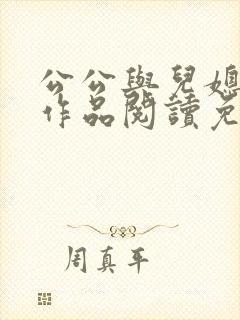 公公與兒媳
作品閱讀免
周真平